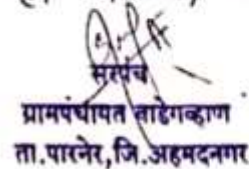 सरपंच
ग्रामपंचायत ताडेगव्हाण
ता.पारनेर,जि.अहमदनगर